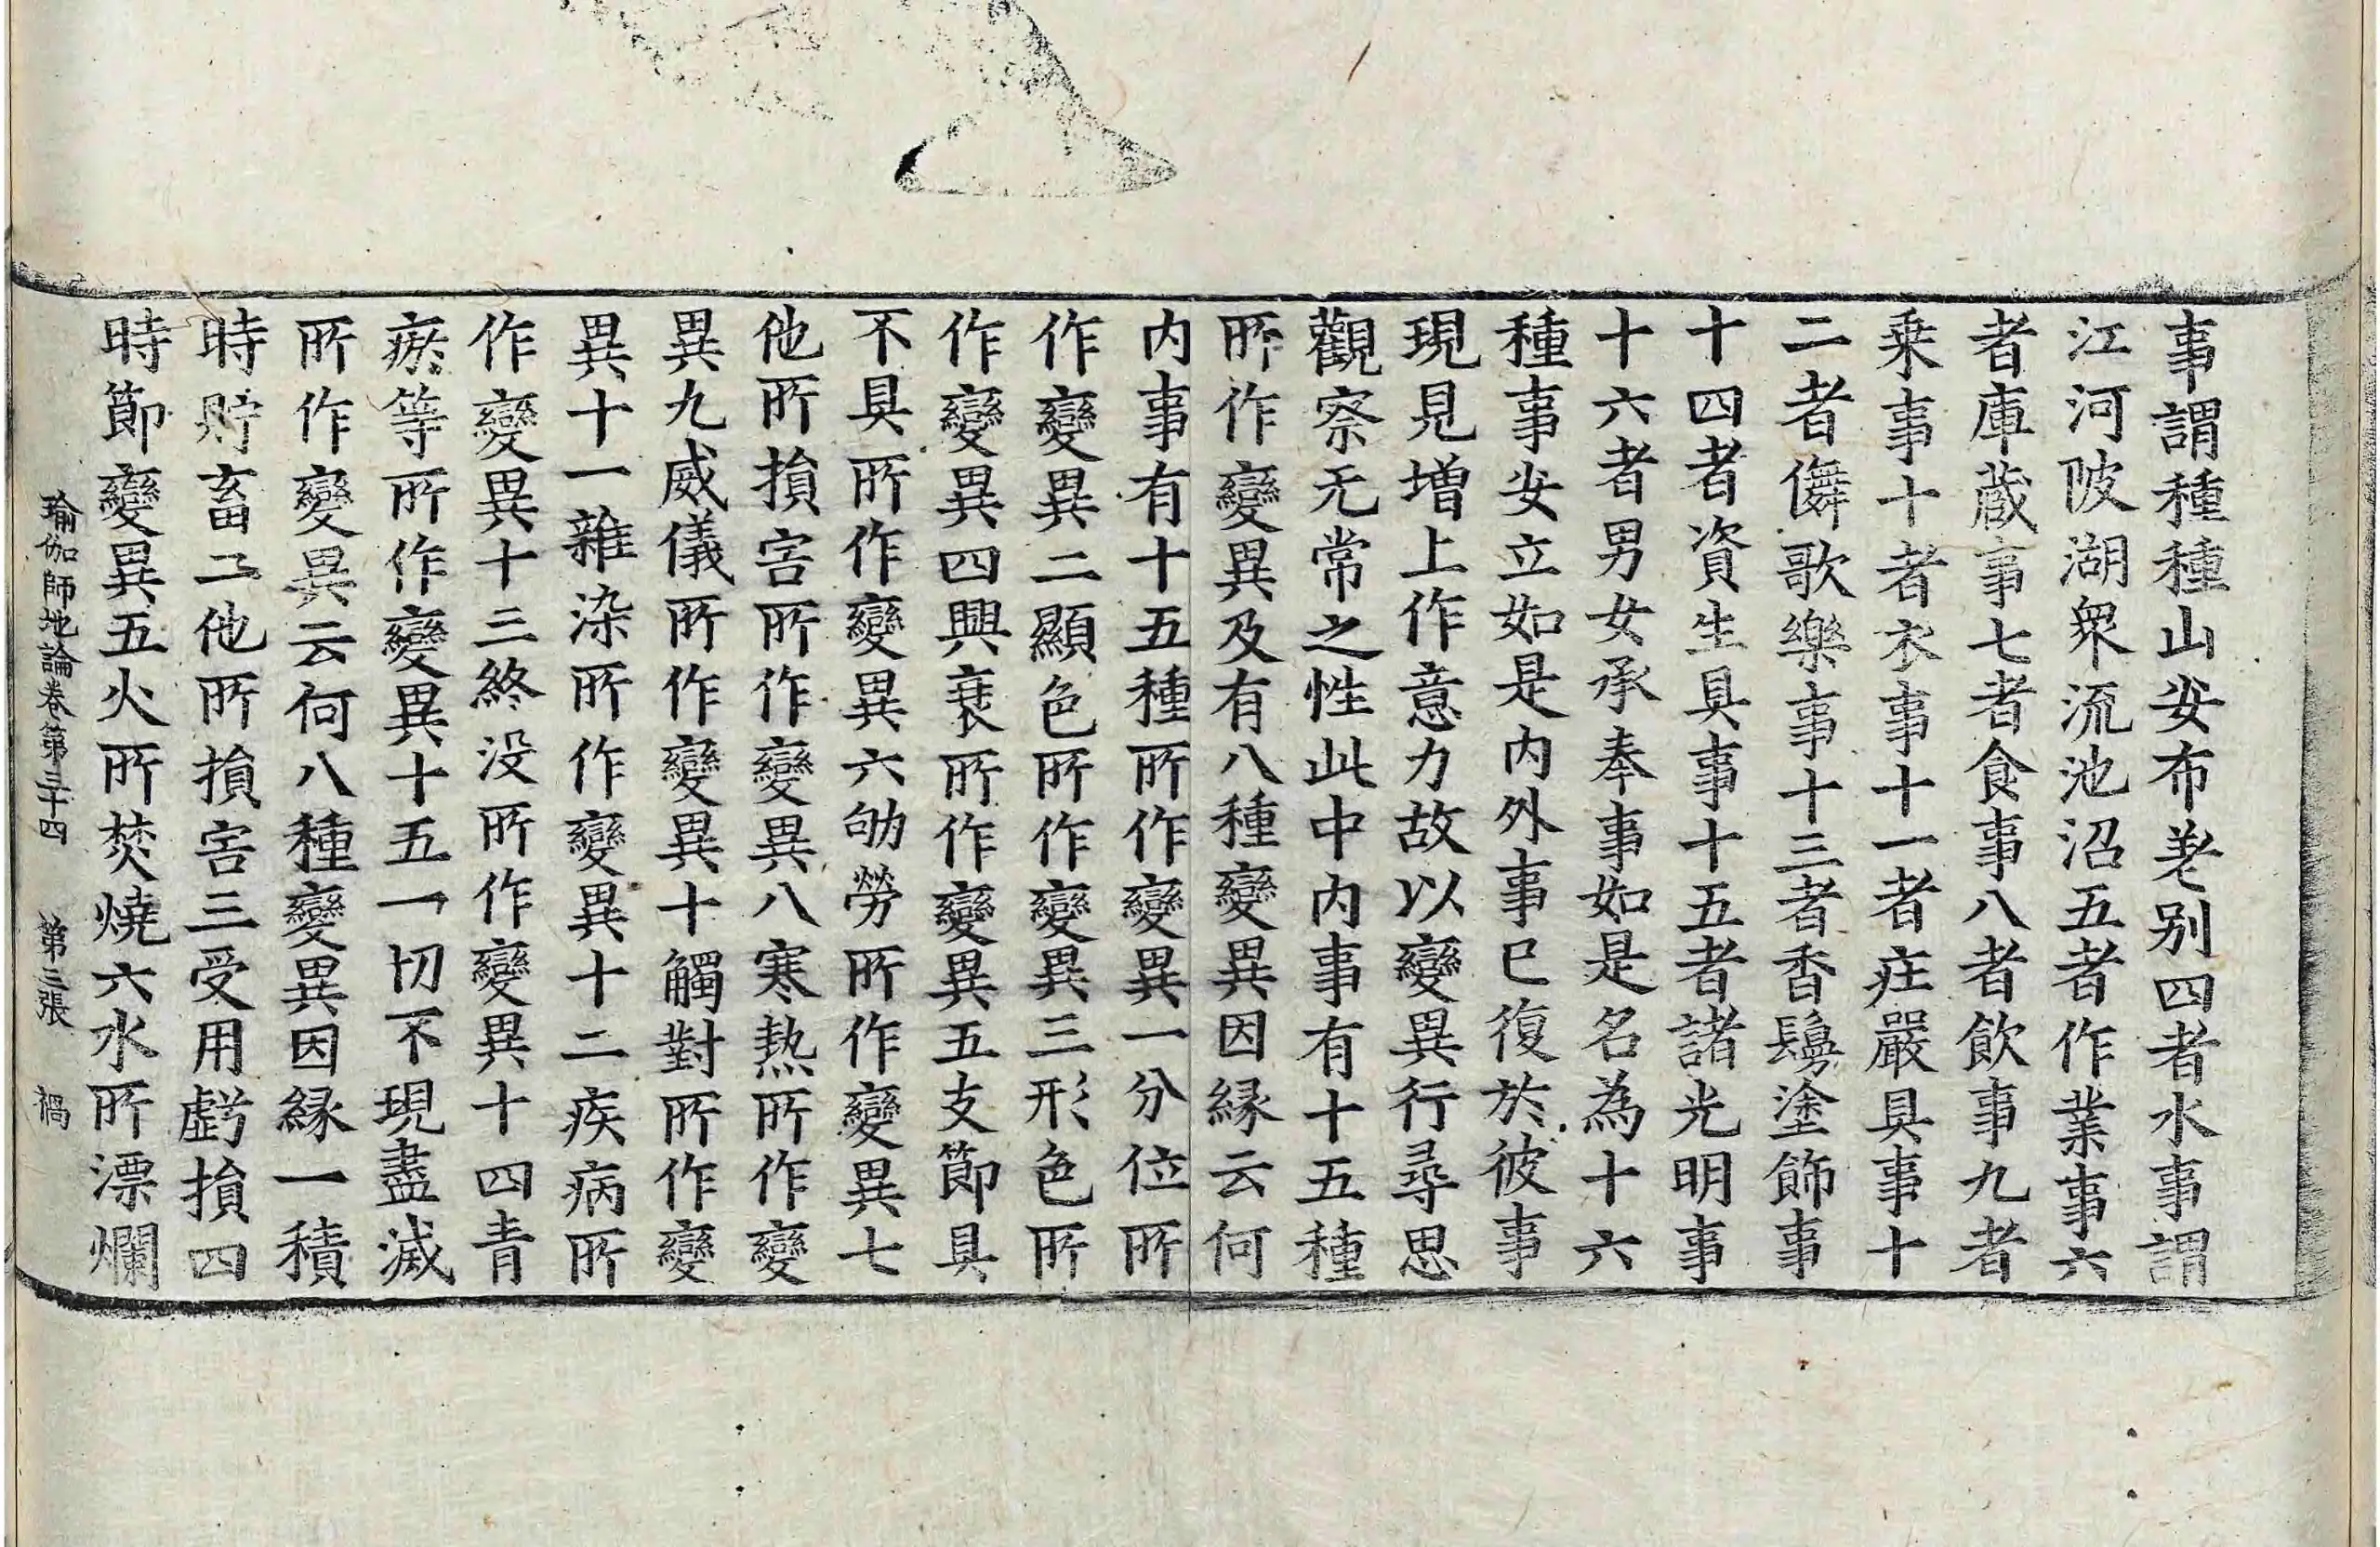 事謂種種山安布差别四者水事謂
江河陂湖衆流池沼五者作業事六
者庫蔵事七者食事八者飲事九者
乗事十者衣事十一者庄嚴具事十
二者儛歌樂事十三者香鬘塗飾事
十四者資生具事十五者諸光明事
十六者男女承奉事如是名為十六
種事安立如是内外事已復於彼事
現見増上作意力故以變異行尋思
觀察无常之性此中内事有十五種
所作變異及有八種變異因縁云何
内事有十五種所作變異一分位所
作變異二顯色所作變異三形色所
作變異四興衰所作變異五支節具
不具所作變異六劬勞所作變異七
他所損害所作變異八寒热所作變
異九威儀所作變異十觸對所作變
異十一雜染所作變異十二疾病所
作變異十三終没所作變異十四青
瘀等所作變異十五一切不現盡滅
所作變異云何八種變異因縁一積
時貯畜二他所損害三受用虧損四
時節變異五火所焚燒六水所漂爛
瑜伽師地論卷第三十四 第三張 禍